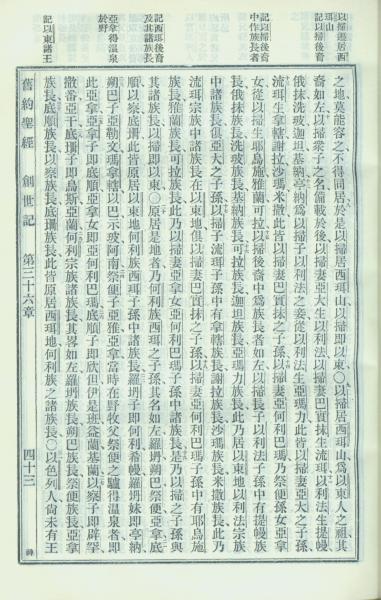 以掃遷居西
珥山
記以掃後裔
記以掃後裔
中作族長者
記西珥後裔
及其諸族長
亞拿得溫泉
於野
記以東諸王
之地莫能容之不得同居於是以掃居西珥山以掃即以東〇以掃居西珥山為以東人之祖其
裔如左以掃眾子之名備載於後以掃妻亞大生以利法以掃妻巴實抹生流珥以利法生提幔
俄抹洗玻迦坦基納亭納為以掃子以利法之妾從以利法生亞瑪力此皆以掃妻亞大之子孫
流珥生拿轄謝拉沙瑪米撒此皆以掃妻巴實抹之子孫以掃妻亞何利巴瑪乃祭便孫女亞拿
女從以掃生耶烏施雅蘭可拉以掃後裔中為族長者如左以掃長子以利法子孫中有提幔族
長俄抹族長洗玻族長基納族長可拉族長迦坦族長亞瑪力族長此乃居以東地以利法宗族
中諸族長俱亞大之子孫以掃子流珥子孫中有拿轄族長謝拉族長沙瑪族長米撒族長此乃
流珥宗族中諸族長在以東地俱以掃妻巴實抹之子孫以掃妻亞何利巴瑪子孫中有耶烏施
族長雅蘭族長可拉族長此乃以掃妻亞拿女亞何利巴瑪子孫中諸族長是乃以掃之子孫與
其諸族長以掃即以東〇原居是地者乃何利族西珥之子孫其名如左羅坍朔巴祭便亞拿底
順以察底珊此皆原居以東地何利族西珥子孫中諸族長羅坍子即何利希幔羅坍妹即亭納
朔巴子亞勒文瑪拿轄以巴示玻阿南祭便子亞雅亞拿當時在野牧父祭便之驢得溫泉者即
此亞拿亞拿子即底順亞拿女即亞何利巴瑪底順子即欣但伊是班益蘭基蘭以察子即辟罕
撒番亞干底珊子即烏斯亞蘭何利宗族諸族長其畧如左羅坍族長朔巴族長祭便族長亞拿
族長底順族長以察族長底珊族長此皆原居西珥地何利族之諸族長〇以色列人尚未有王
舊約聖經 創世記 第三十六章 四十三 神